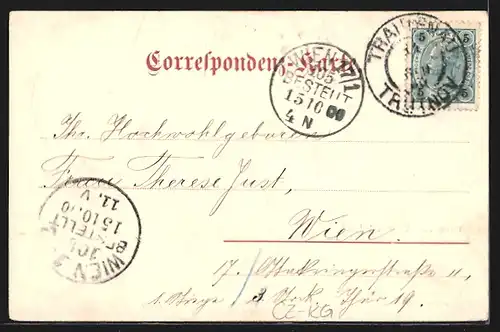 Correspondenz-Karte
TRAUTENAU
TRUTNOV
5 5
WIEN 7/1
105
BESTELLT
15 10 00
4 N
Ihr. Hochwohlgeboren
Frau Therese Just,
Wien.
17. Ottakringerstraße 11,
1. Stiege / 3. Stock, Thür 19.
WIEN
105
BESTELLT
15 10.00
11. V
CZ-KG